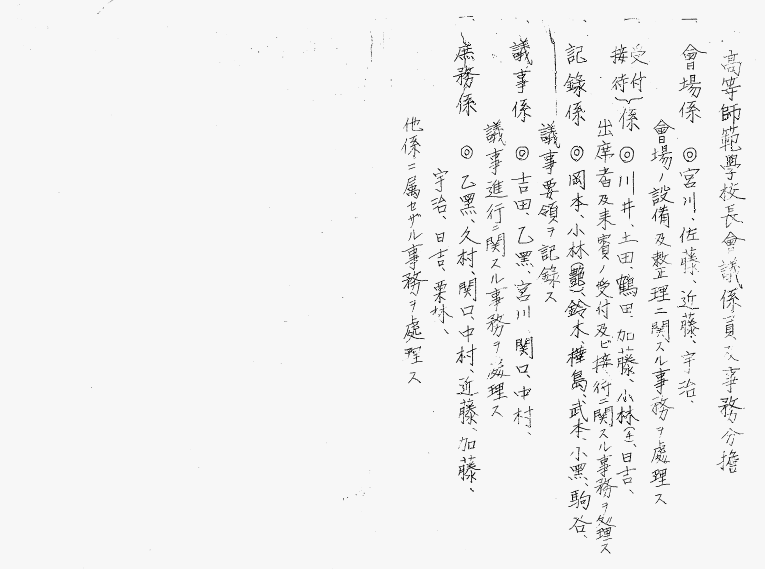 高等師範學校長會議係員及事務分擔
一 會場係 ◎宮川、佐藤、近藤、宇治、
會場ノ設備及整理ニ関スル事務ヲ處理ス
一 受付接待}係 ◎川井、土田、鶴田、加藤、小林(生)、日吉、
出席者及来賓ノ受付及ビ接行ニ関スル事務ヲ処理ス
、記錄係 ◎岡本、小林、鈴木、樺島、武本、小黑、駒谷、
議事要領ヲ記錄ス
、議事係 ◎吉田、乙黑、宮川、関口、中村、
議事進行ニ関スル事務ヲ処理ス
一 庶務係 ◎乙黑、久村、関口、中村、近藤、加藤、
宇治、日吉、栗林、
他係ニ属セザル事務ヲ處理ス